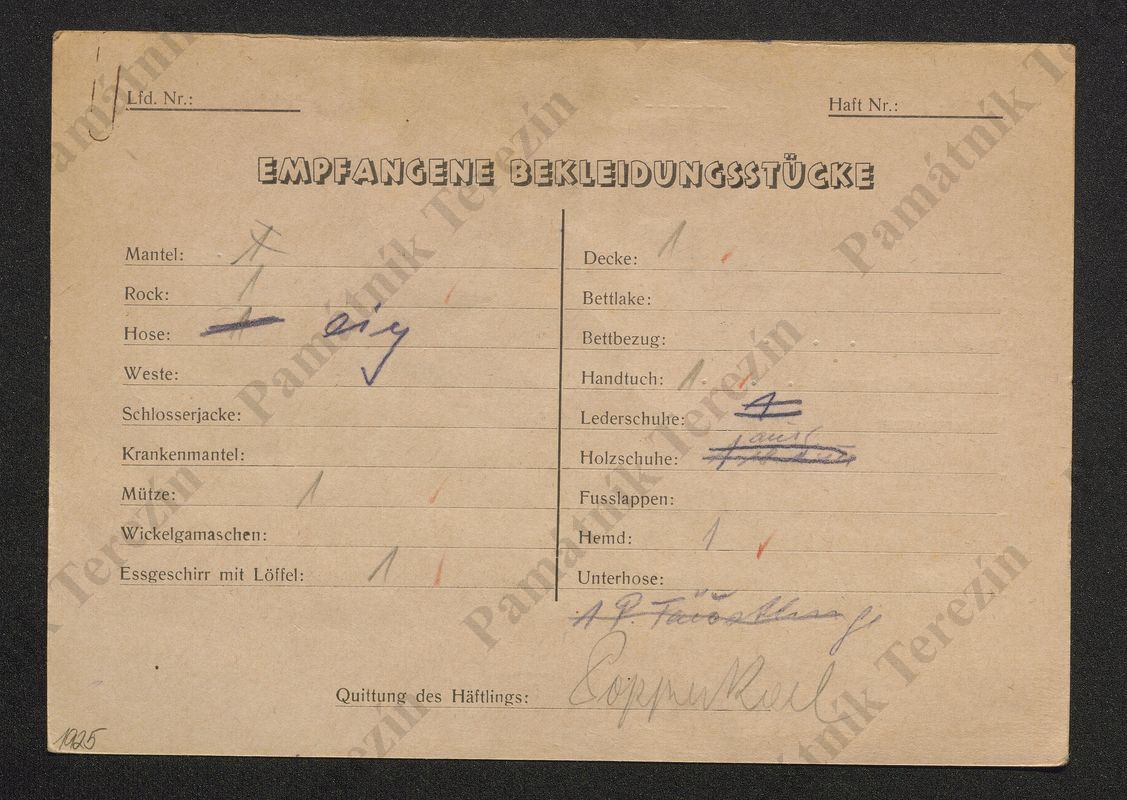 Lfd. Nr.:
Haft Nr.:
EMPFANGENE BEKLEIDUNGSSTÜCKE
Mantel: 1
Rock: 1
Hose: 1 eig
Weste:
Schlosserjacke:
Krankenmantel:
Mütze: 1
Wickelgamaschen:
Essgeschirr mit Löffel: 1
Decke: 1
Bettlake:
Bettbezug:
Handtuch: 1
Lederschuhe: 1
Holzschuhe:
Fusslappen:
Hemd: 1
Unterhose:
1 P. Fäustlinge
Quittung des Häftlings: Popper Karl
1925
Památník Terezín